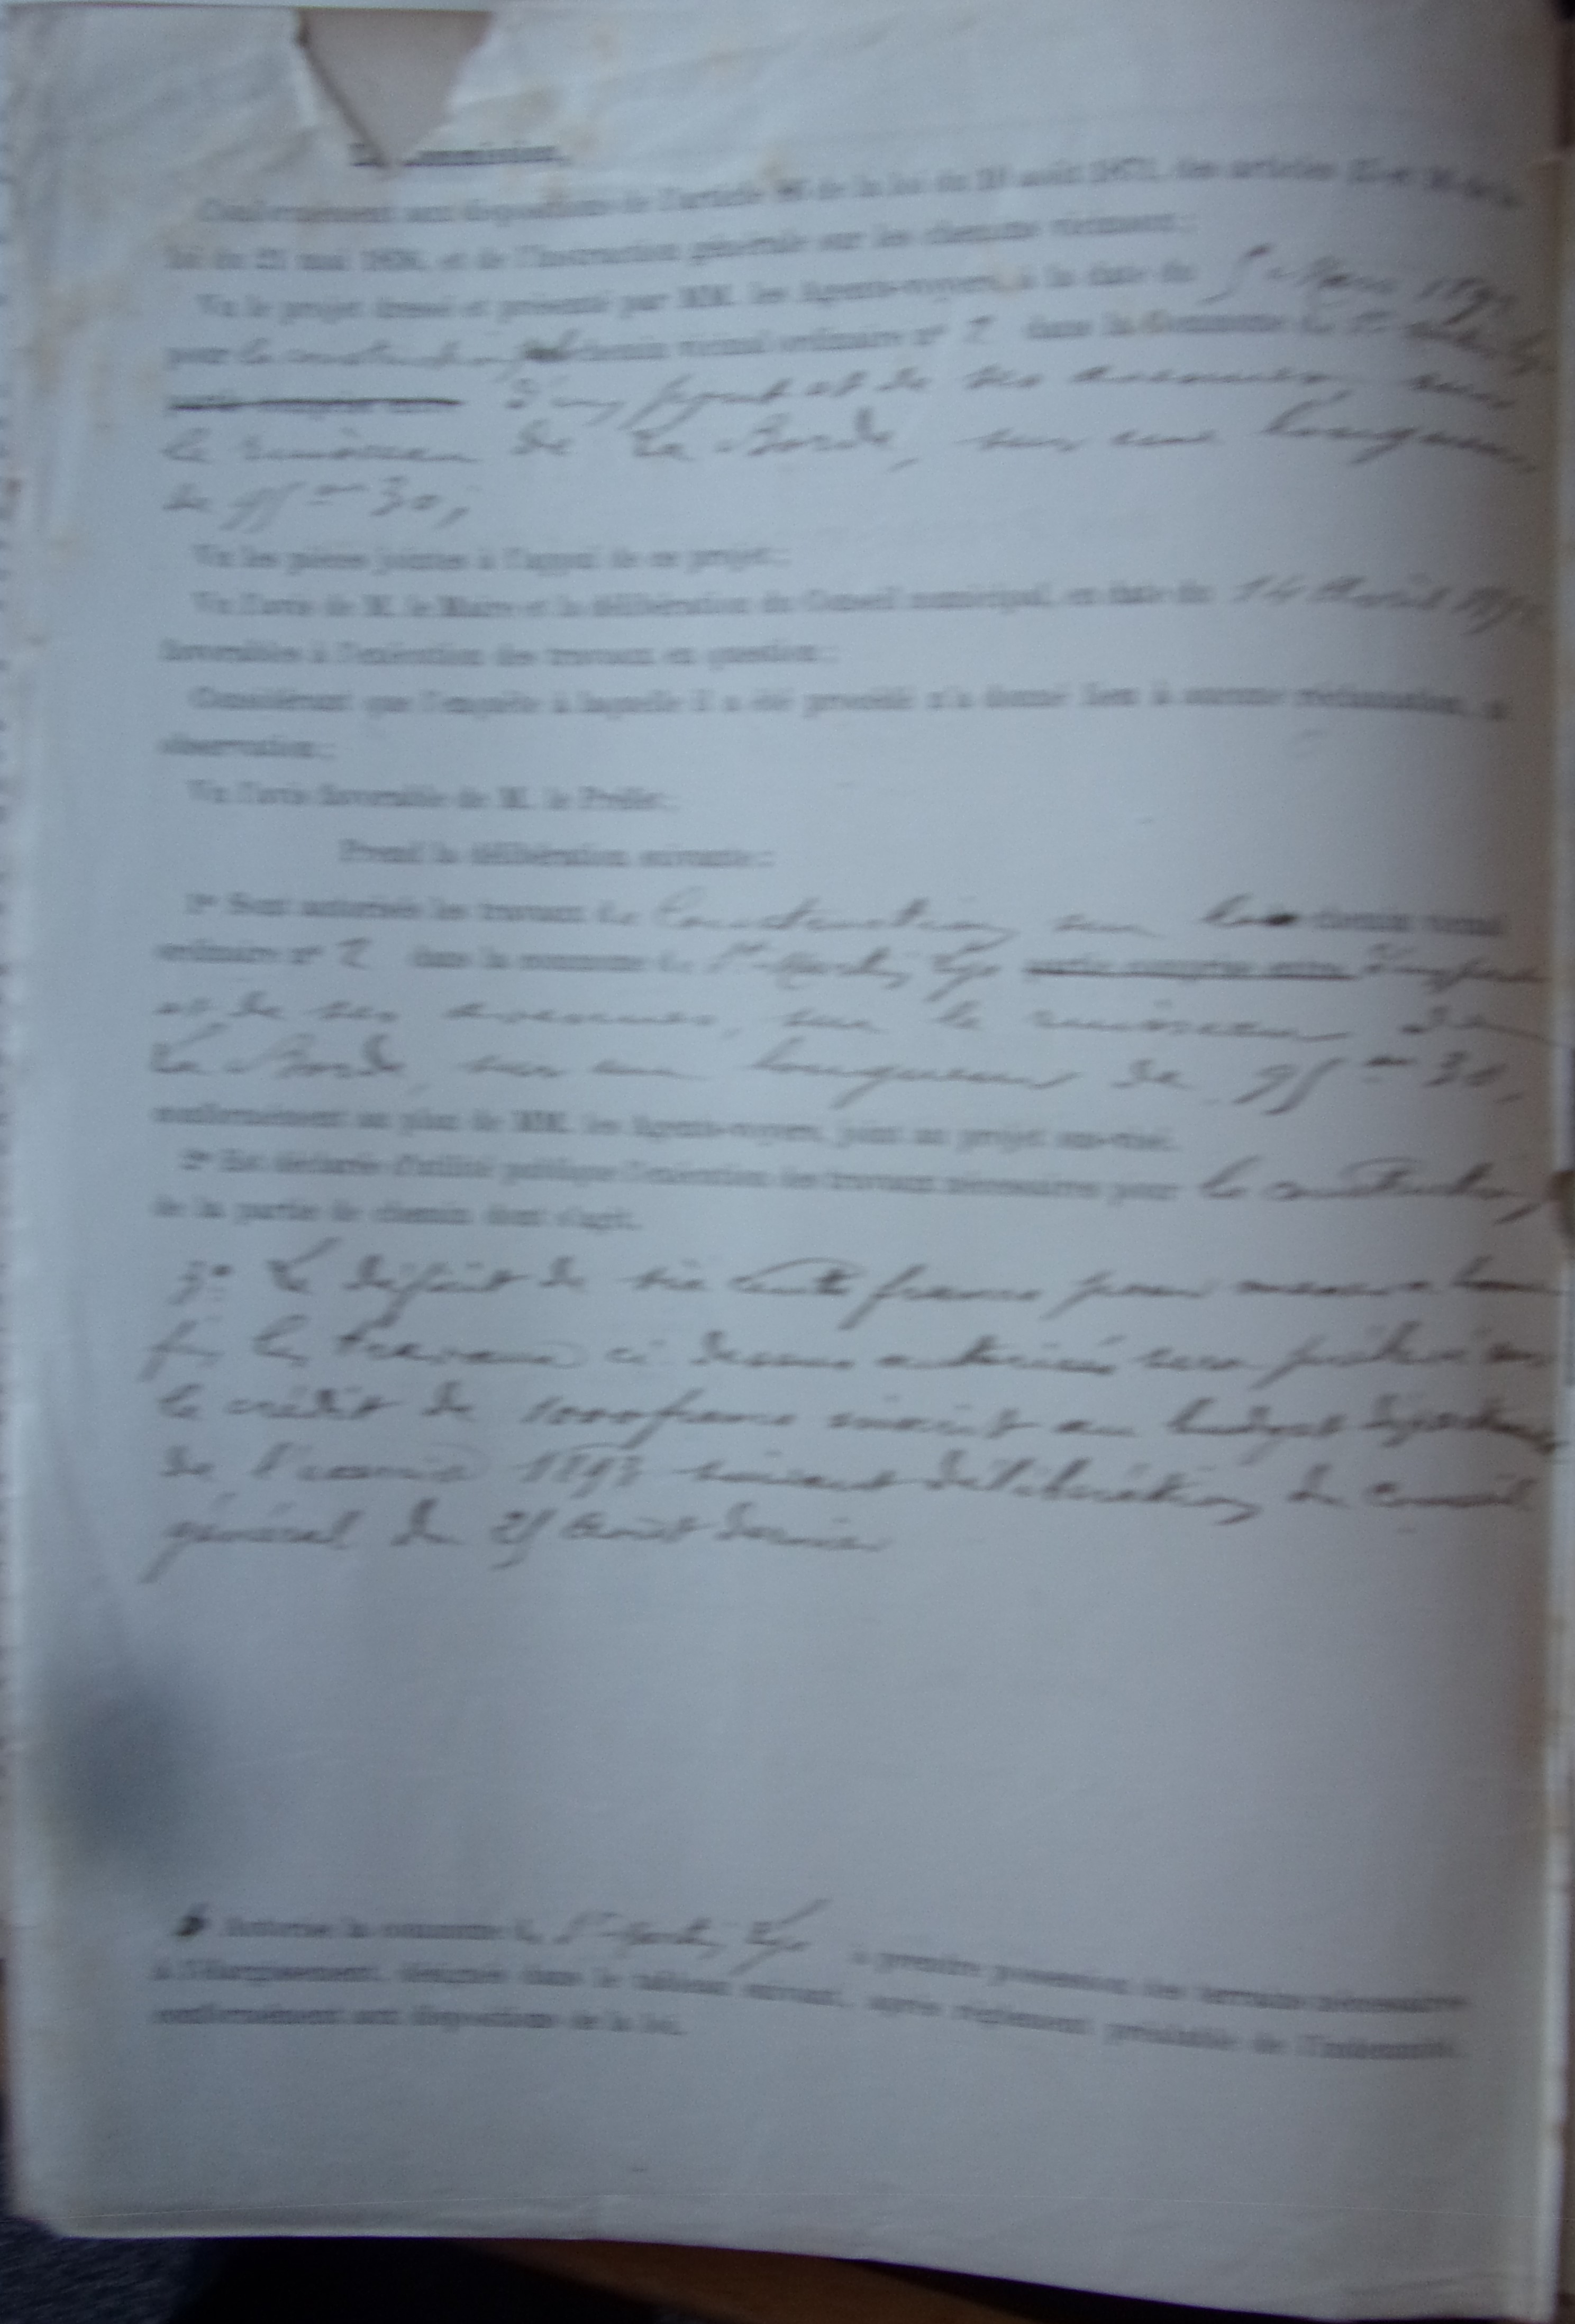 La Commission,
Conformément aux dispositions de l'article 86 de la loi du 10 août 1871, des articles 15 et 16 de la
loi du 21 mai 1836, et de l'Instruction générale sur les chemins vicinaux ;
Vu le projet dressé et présenté par MM. les Agents-voyers, à la date du 5 Mars
pour la construction chemin vicinal ordinaire nº 2 dans la Commune de St
d'un pont et de ses avenues, sur
le ruisseau de La Borde, sur une longueur
de 95 m 30 ;
Vu les pièces jointes à l'appui de ce projet ;
Vu l'avis de M. le Maire et la délibération du Conseil municipal, en date du 14 Avril
favorables à l'exécution des travaux en question ;
Considérant que l'enquête à laquelle il a été procédé n'a donné lieu à aucune réclamation, ni
observation ;
Vu l'avis favorable de M. le Préfet ;
Prend la délibération suivante :
1º Sont autorisés les travaux de Construction sur le chemin vicinal
ordinaire nº 2 dans la commune de St partie comprise entre d'un pont
et de ses avenues, sur le ruisseau de
La Borde, sur une longueur de 95 m 30,
conformément au plan de MM. les Agents-voyers, joint au projet sus-visé.
2º Est déclarée d'utilité publique l'exécution des travaux nécessaires pour la construction
de la partie de chemin dont s'agit.
3º Le déficit de six cents francs pour mener à bonne
fin les travaux ci dessus autorisés sera prélevé sur
le crédit de 1000 francs inscrit au budget
de l'année 1893 suivant délibération du Conseil
général du 25 Août dernier
Autorise la commune de St à prendre possession des terrains nécessaires
à l'élargissement, désignés dans le tableau suivant, après règlement préalable de l'indemnité,
conformément aux dispositions de la loi.